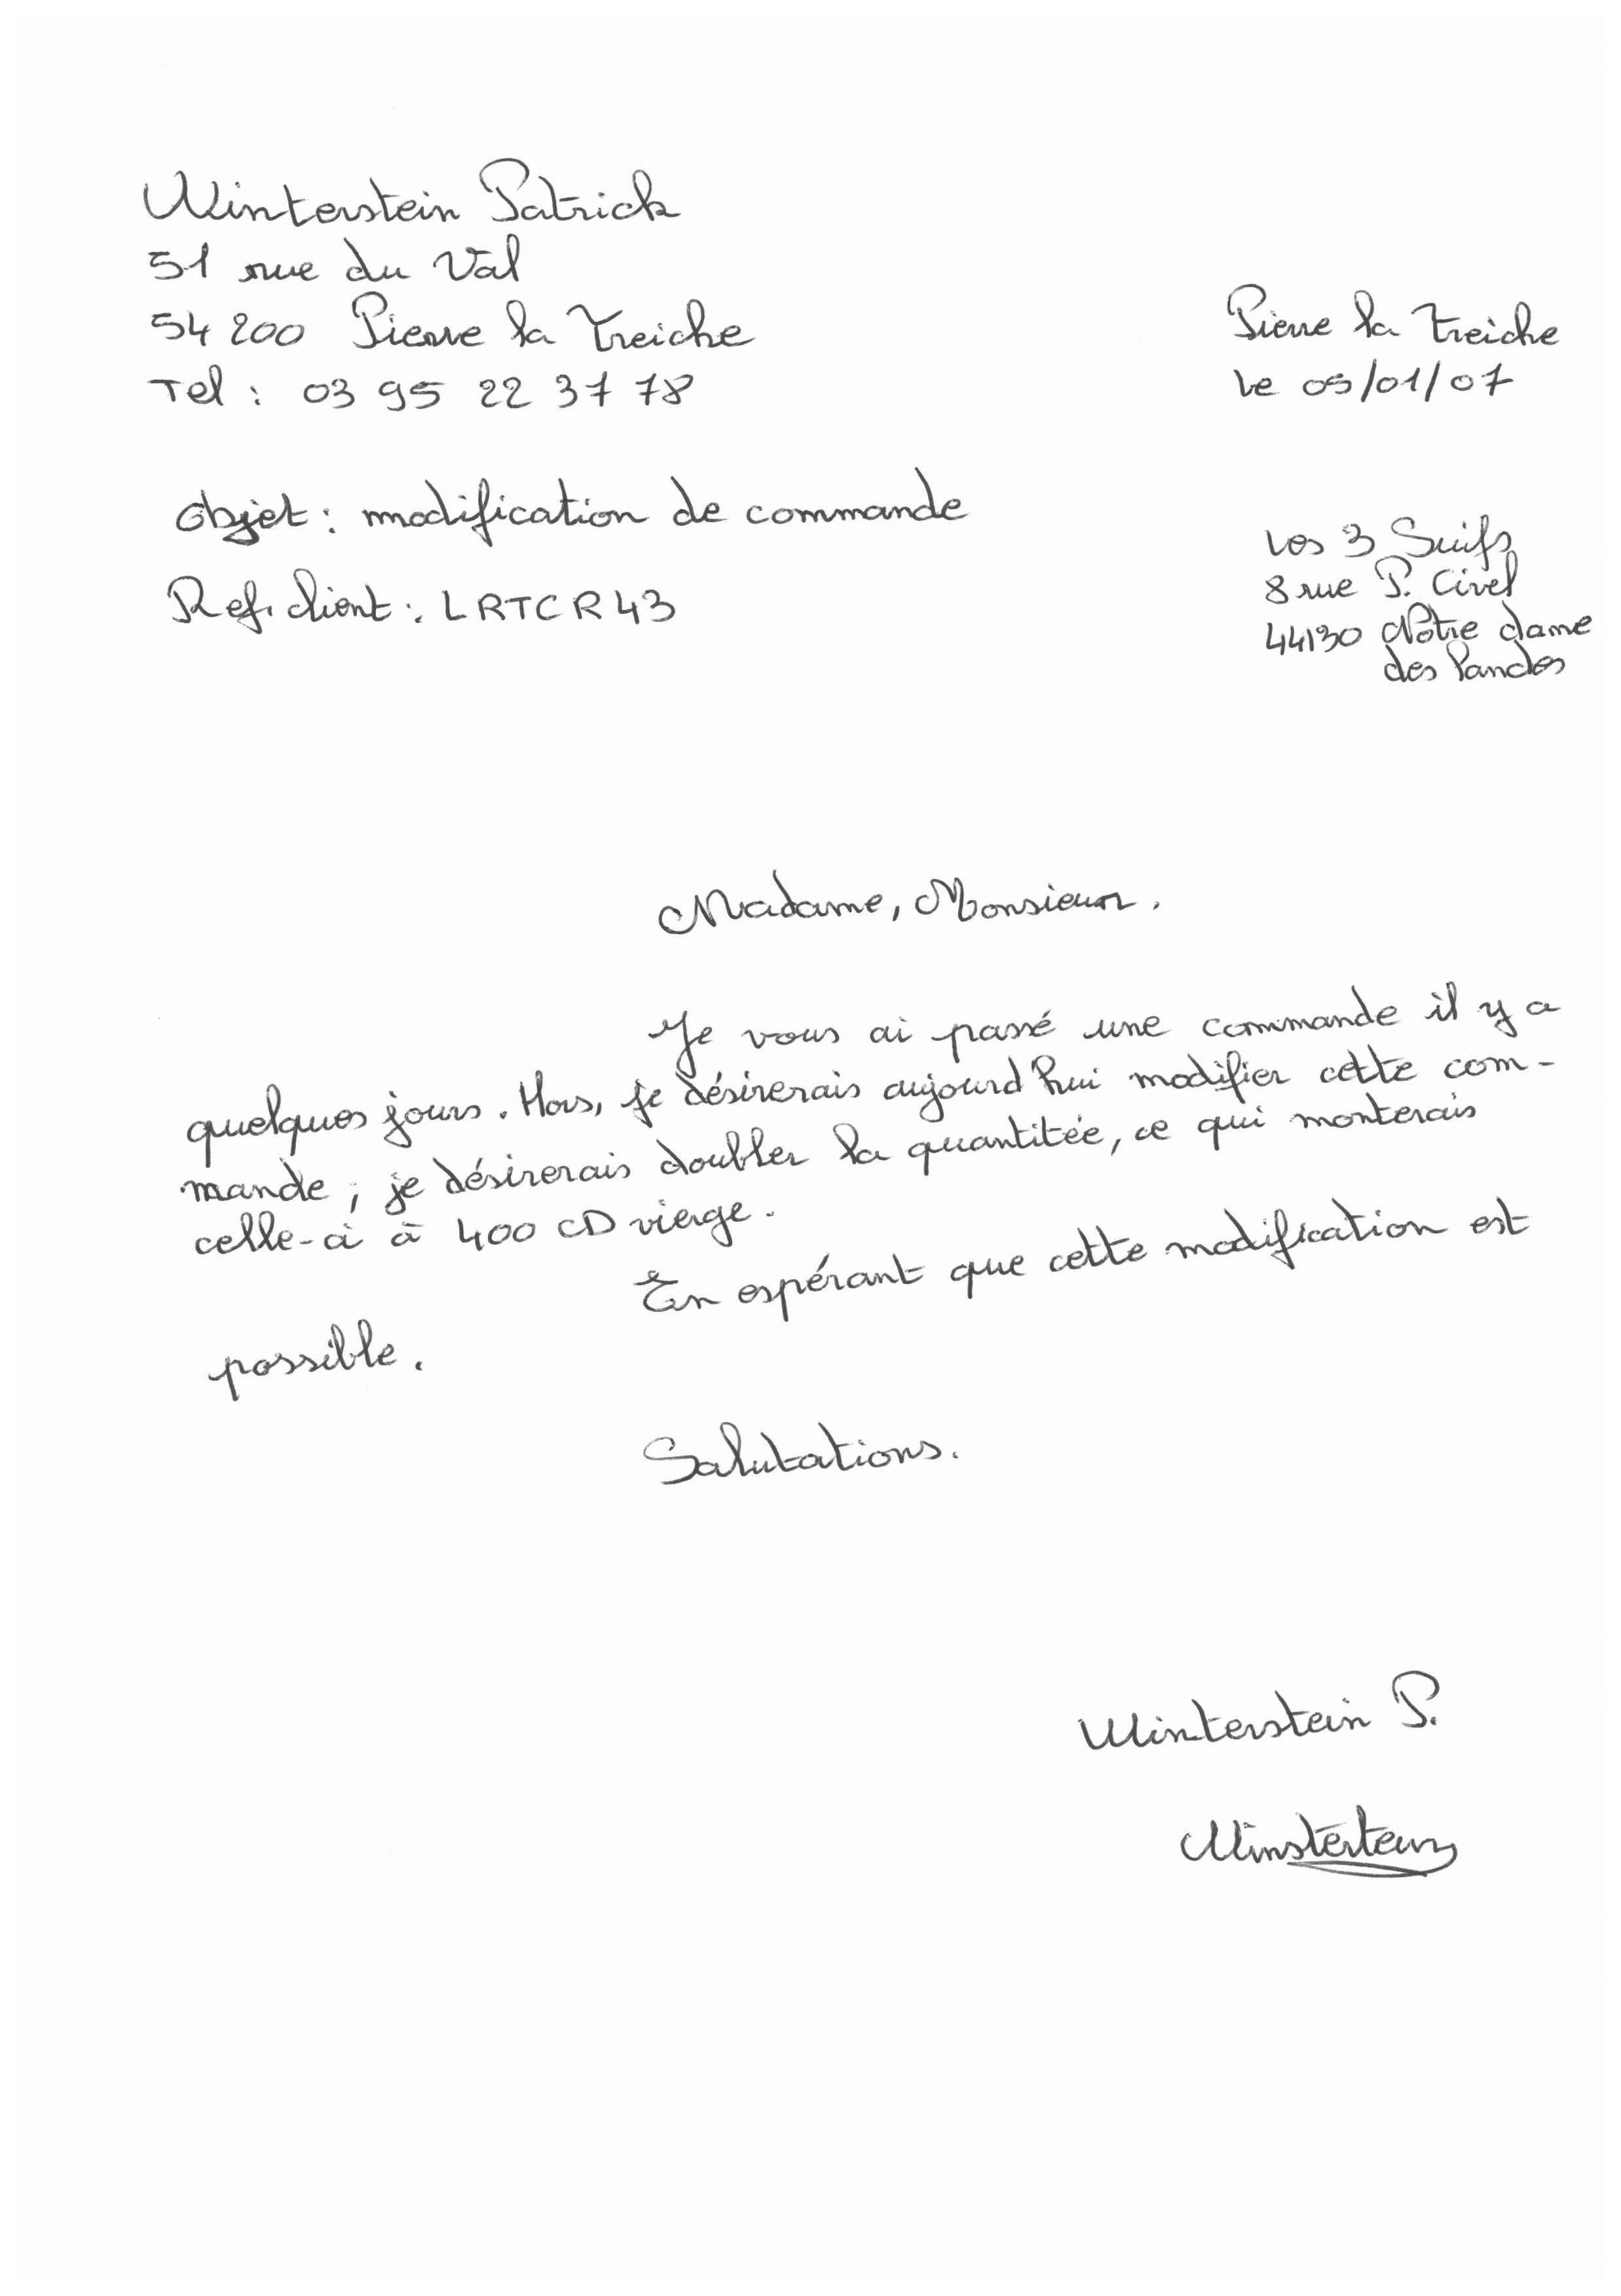 Winterstein Patrick
51 rue du Val
54 200 Pierre la Treiche
Tel : 03 95 22 37 78
Pierre la Treiche
le 05/01/07
Objet : modification de commande
Ref. client : LRTCR43
Les 3 Suifs
8 rue P. Civel
44130 Notre dame
des Landes
Madame, Monsieur.
Je vous ai passé une commande il y a
quelques jours. Hors, je désirerais aujourd'hui modifier cette com-
mande, je désirerais doubler la quantitée, ce qui monterais
celle-ci à 400 CD vierge.
En espérant que cette modification est
possible.
Salutations.
Winterstein P.